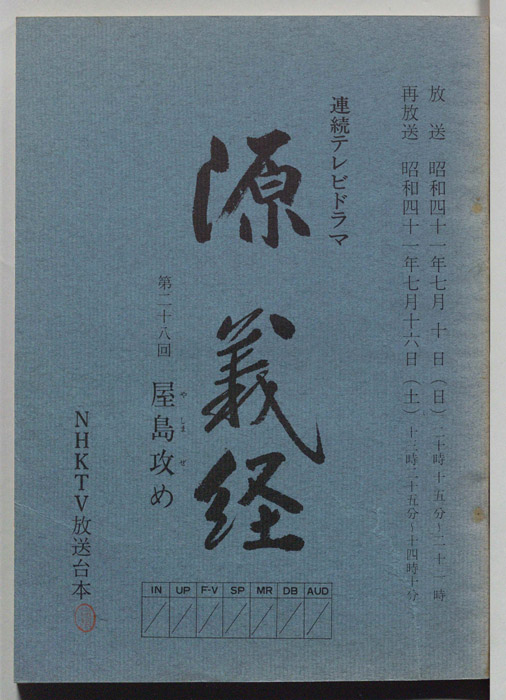 放送 昭和四十一年七月十日（日）二十時十五分～二十一時
再放送 昭和四十一年七月十六日（土）十三時二十五分～十四時十分
連続テレビドラマ
源義経
第二十八回 屋島攻め
やしまぜ
NHKTV放送台本
IN UP F-V SP MR DB AUD